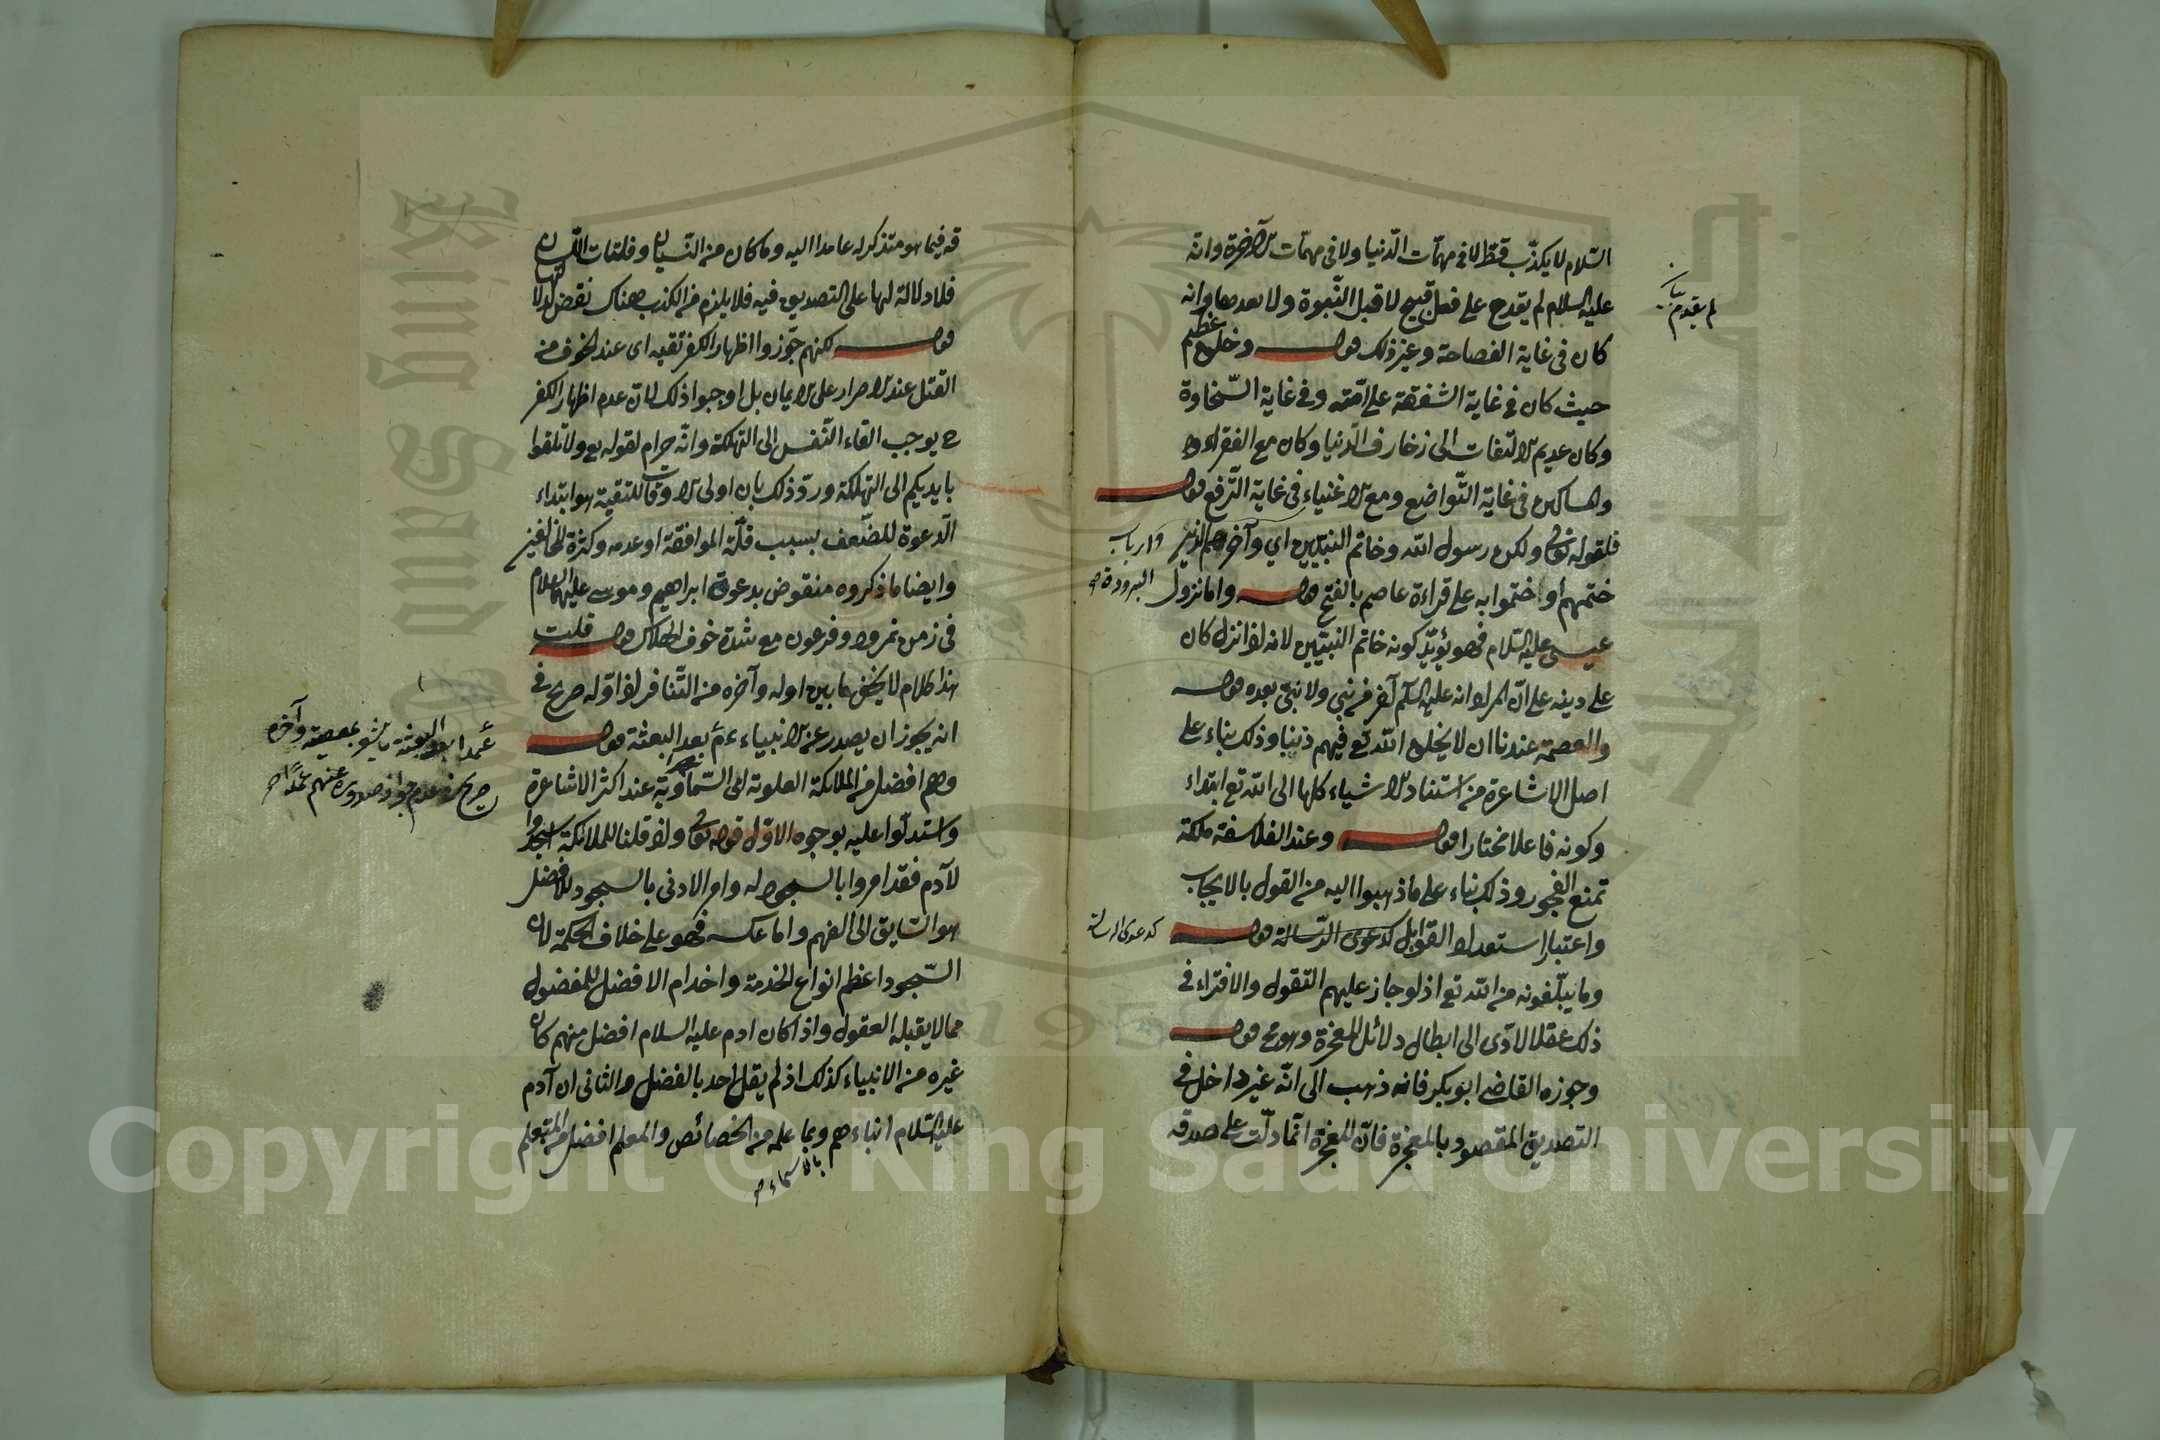 السّلام لا يكذب قطّ لا في مهمّات الدّنيا ولا في مهمّات الآخرة وانّه
عليه السلام لم يقدح على فعل قبيح لا قبل النّبوة ولا بعدها وانه
كان في غاية الفصاحة وغير ذلك قوله وخلق عظيم
حيث كان في غاية الشفقة على امّته وفي غاية السّخاوة
وكان عديم الالتفات الى زخارف الدّنيا وكان مع الفقراء
والمساكين في غاية التّواضع ومع الاغنياء في غاية التّرفع قوله
فلقوله تعالى ولكن رسول الله وخاتم النبيّين اي وآخرهم الذين
ختمهم أو اختموا به على قراءة عاصم بالفتح قوله واما نزول
عيسى عليه السّلام فهو يؤيّد كونه خاتم النبيّين لانه اذا نزل كان
على دينه على انّ المراد انه عليه السّلام آخر من نبي ولا نبي بعده قوله
والعصمة عندنا ان لا يخلق الله تع فيهم ذنبا وذلك بناء على
اصل الاشاعرة من استناد الاشياء كلها الى الله تع ابتداء
وكونه فاعلا مختارا قوله وعند الفلاسفة ملكة
تمنع الفجور وذلك بناء على ما ذهبوا اليه من القول بالايجاب
واعتبار استعداد القوابل كدعوى الرّسالة قوله
وما يبلّغونه من الله تع اذ لو جاز عليهم التقول والافتراء في
ذلك عقلا لادّى الى ابطال دلائل المعجزة وهو مح قوله
وجوزه القاضي ابو بكر فانه ذهب الى انّه غير داخل في
التصديق المقصود بالمعجزة فانّ المعجزة انّما دلّت على صدقه
لم يقدم
كدعوى الرسالة
قه فيما هو متذكر له عامدا اليه وما كان من النّسيان وفلتات اللّسان
فلا دلالة لها على التصديق فيه فلا يلزم من الكذب هناك نقض لدلالتها
قوله لكنهم جوّزوا اظهار الكفر تقيه اى عند الخوف من
القتل عند الاصرار على الايمان بل اوجبوا ذلك لانّ عدم اظهار الكفر
ح يوجب القاء النّفس الى التهلكة وانّه حرام لقوله تع ولا تلقوا
بايديكم الى التهلكة وردّ ذلك بان اولى الاوقات للتقية هو ابتداء
الدّعوة للضّعف بسبب قلّة الموافقة او عدمه وكثرة المخالفين
وايضا ما ذكروه منقوض بدعوة ابراهيم وموسى عليهما السلام
في زمن نمرود وفرعون مع شدة خوف الهلاك قوله قلت
هذا كلام لا يخفى ما بين اوله وآخره من التّنافر اذ اوّله صريح في
انه يجوز ان يصدر عن الانبياء عم بعد البعثة قوله
وهم افضل من الملائكة العلوية اى السّماوية عند اكثر الاشاعرة
واستدلّوا عليه بوجوه الاوّل قوله تعالى واذ قلنا للملائكة اسجدوا
لآدم فقد امروا بالسجود له وامر الادنى بالسجود للافضل
هو السّابق الى الفهم واما عكسه فهو على خلاف الحكمة لان
السّجود اعظم انواع الخدمة واخدام الافضل للمفضول
مما لا يقبله العقول واذا كان ادم عليه السلام افضل منهم كان
غيره من الانبياء كذلك اذ لم يقل احد بالفضل والثاني ان آدم
عليه السّلام انباءهم وبما علمه من الخصائص والمعلم افضل من المتعلم
بالاسماء صح
King Saud University
1957
Copyright © King Saud University